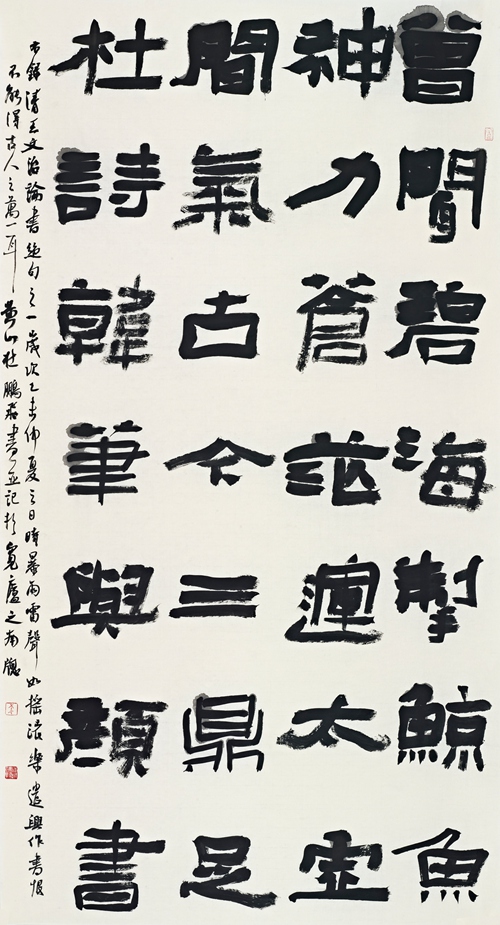 曾聞碧海掣鯨魚
神力蒼茫運太虛
間氣古今三鼎足
杜詩韓筆與顏書
右錄清王文治論書絕句之一歲次乙未仲夏之日時暴雨雷聲如搖滾樂遣興作書恨
不能得古人之萬一耳黃山杜鵬飛書並記於寬廬之南牕